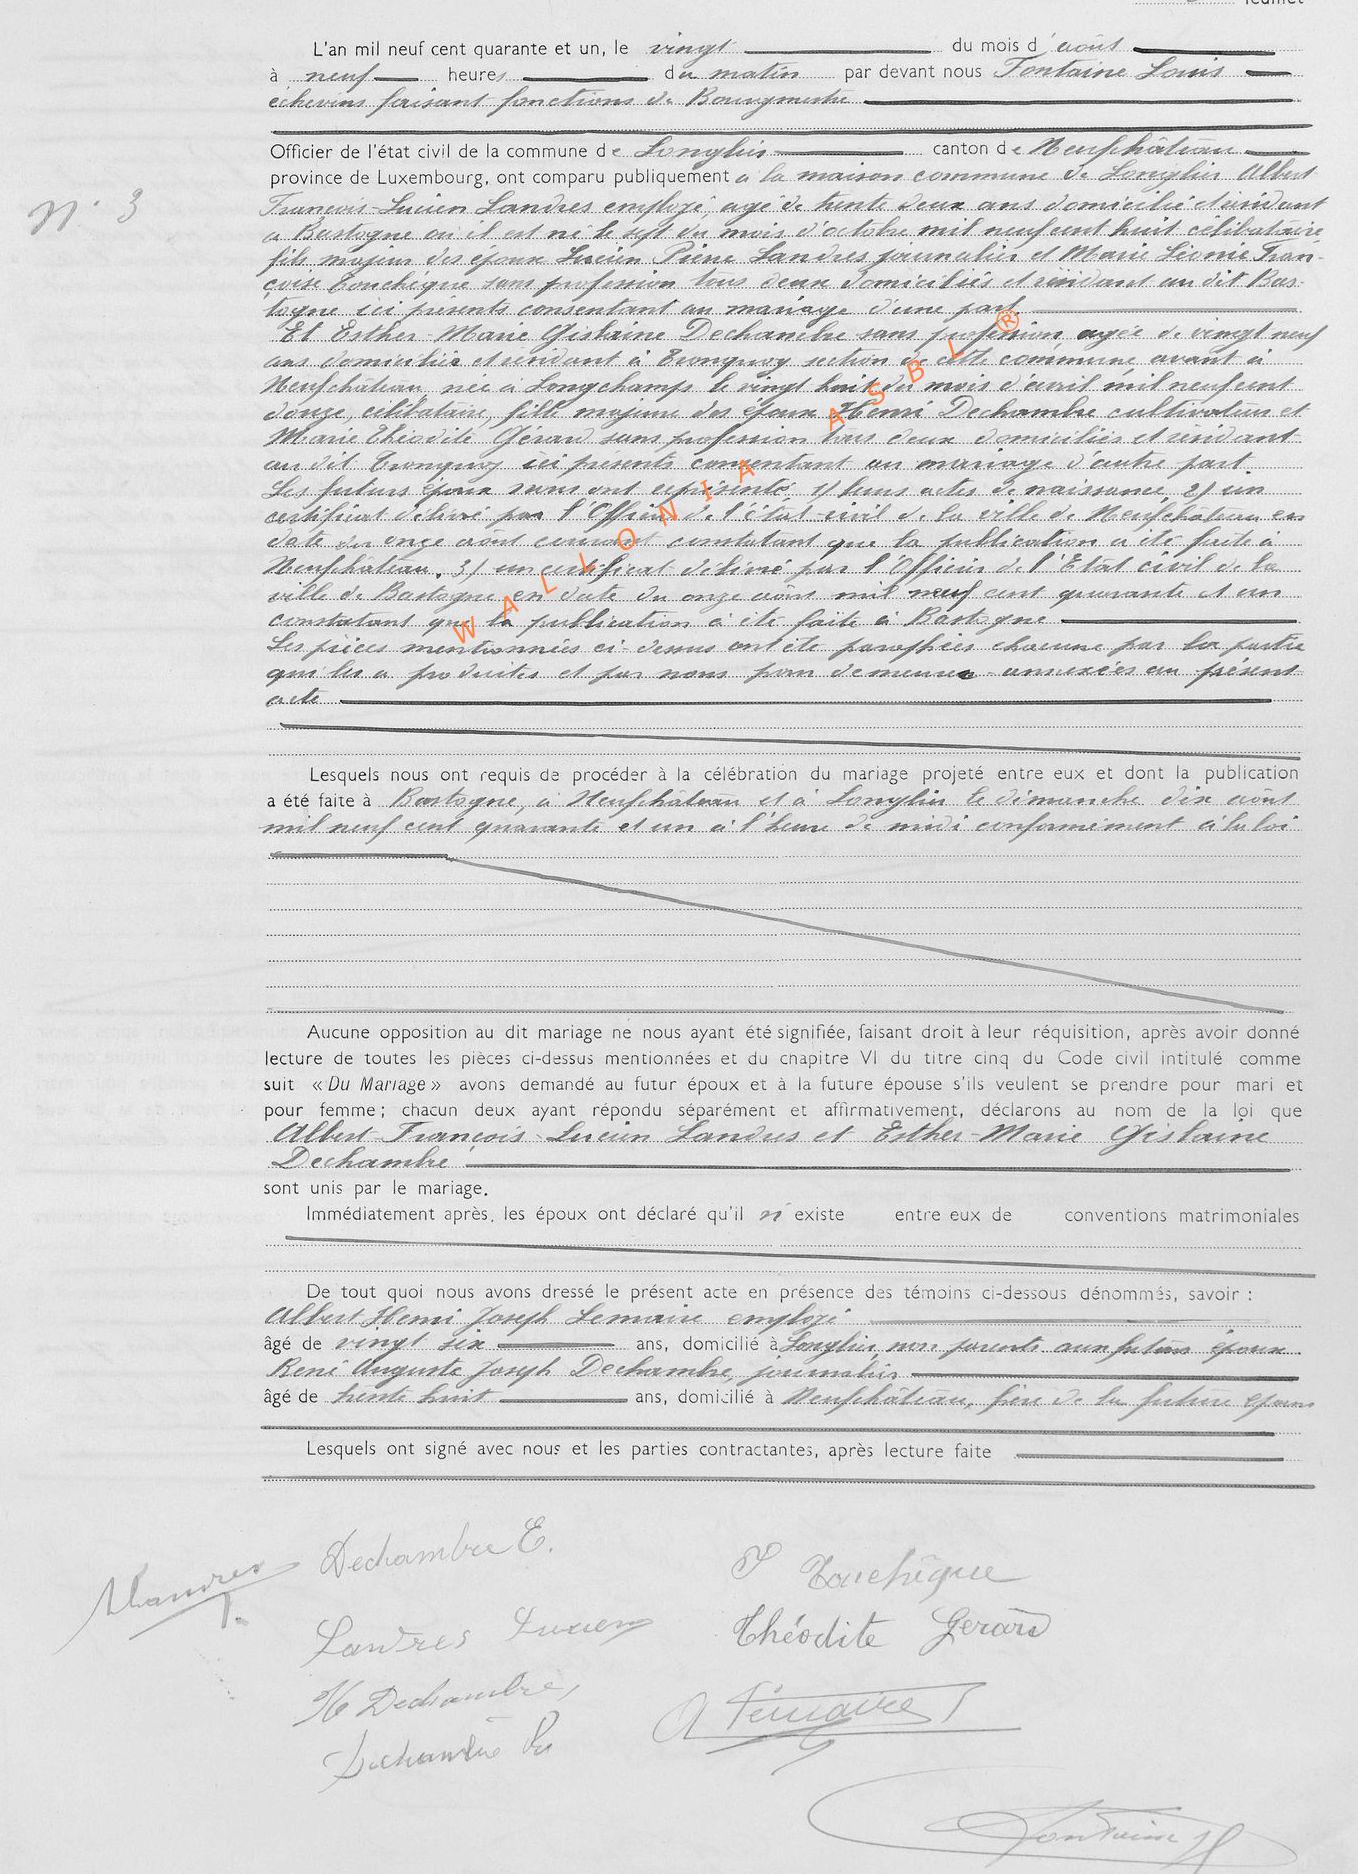 feuillet
L'an mil neuf cent quarante et un, le vingt du mois d'août
à neuf heures du matin par devant nous Fontaine Louis
échevins faisant fonctions de Bourgmestre
Officier de l'état civil de la commune de Longlier canton de Neufchâteau
province de Luxembourg, ont comparu publiquement a la maison commune de Longlier Albert
N° 3
François-Lucien Landres employé, agé de trente deux ans domicilié et résidant
a Bastogne ou il est né le sept du mois d'octobre mil neuf cent huit célibataire
fils majeur des époux Lucien Pierre Landres journalier et Marie Léonie Fran-
çoise Touchèque sans profession tous deux domiciliés et résidant au dit Bas-
togne ici présents consentant au mariage d'une part
Et Esther-Marie Gislaine Dechambre sans profession, agée de vingt neuf
ans domiciliée et résidant à Tronquoy section de cette commune, avant à
Neufchateau, née a Longchamps le vingt huit du mois d'avril mil neuf cent
douze, célibataire, fille majeure des époux Henri Dechambre cultivateur et
Marie Théodite Gérard sans profession tous deux domiciliés et résidant
au dit Tronquoy ici présents consentant au mariage d'autre part.
Les futurs époux nous ont représenté 1) leurs actes de naissance, 2) un
certificat délivré par l'Officier de l'état-civil de la ville de Neufchâteau en
date du onze aout courant constatant que la publication a été faite à
Neufchâteau. 3) un certificat délivré par l'Officier de l'Etat civil de la
ville de Bastogne en date du onze août mil neuf cent quarante et un
constatant que la publication à été faite à Bastogne
Les pièces mentionnées ci-dessus ont été paraphées chacune par la partie
qui les a produites et par nous pour demeurer annexées au présent
acte
WALLONIA ASBL ®
Lesquels nous ont requis de procéder à la célébration du mariage projeté entre eux et dont la publication
a été faite à Bastogne, a Neufchâteau et à Longlier le dimanche dix août
mil neuf cent quarante et un à l'heure de midi conformément à la loi
Aucune opposition au dit mariage ne nous ayant été signifiée, faisant droit à leur réquisition, après avoir donné
lecture de toutes les pièces ci-dessus mentionnées et du chapitre VI du titre cinq du Code civil intitulé comme
suit «Du Mariage» avons demandé au futur époux et à la future épouse s'ils veulent se prendre pour mari et
pour femme; chacun deux ayant répondu séparément et affirmativement, déclarons au nom de la loi que
Albert-François-Lucien Landres et Esther-Marie Gislaine
Dechambre
sont unis par le mariage.
Immédiatement après, les époux ont déclaré qu'il n'existe entre eux de conventions matrimoniales
De tout quoi nous avons dressé le présent acte en présence des témoins ci-dessous dénommés, savoir :
Albert Henri Joseph Lemaire employé
âgé de vingt six ans, domicilié à Longlier, non parents aux futurs époux
René Auguste Joseph Dechambre, journalier
âgé de trente huit ans, domicilié à Neufchâteau, frère de la future épouse
Lesquels ont signé avec nous et les parties contractantes, après lecture faite
ALandres
Dechambre E.
F Touchèque
Landres Lucien
Théodite Gerard
H Dechambre,
A Lemaire
Dechambre
Fontaine